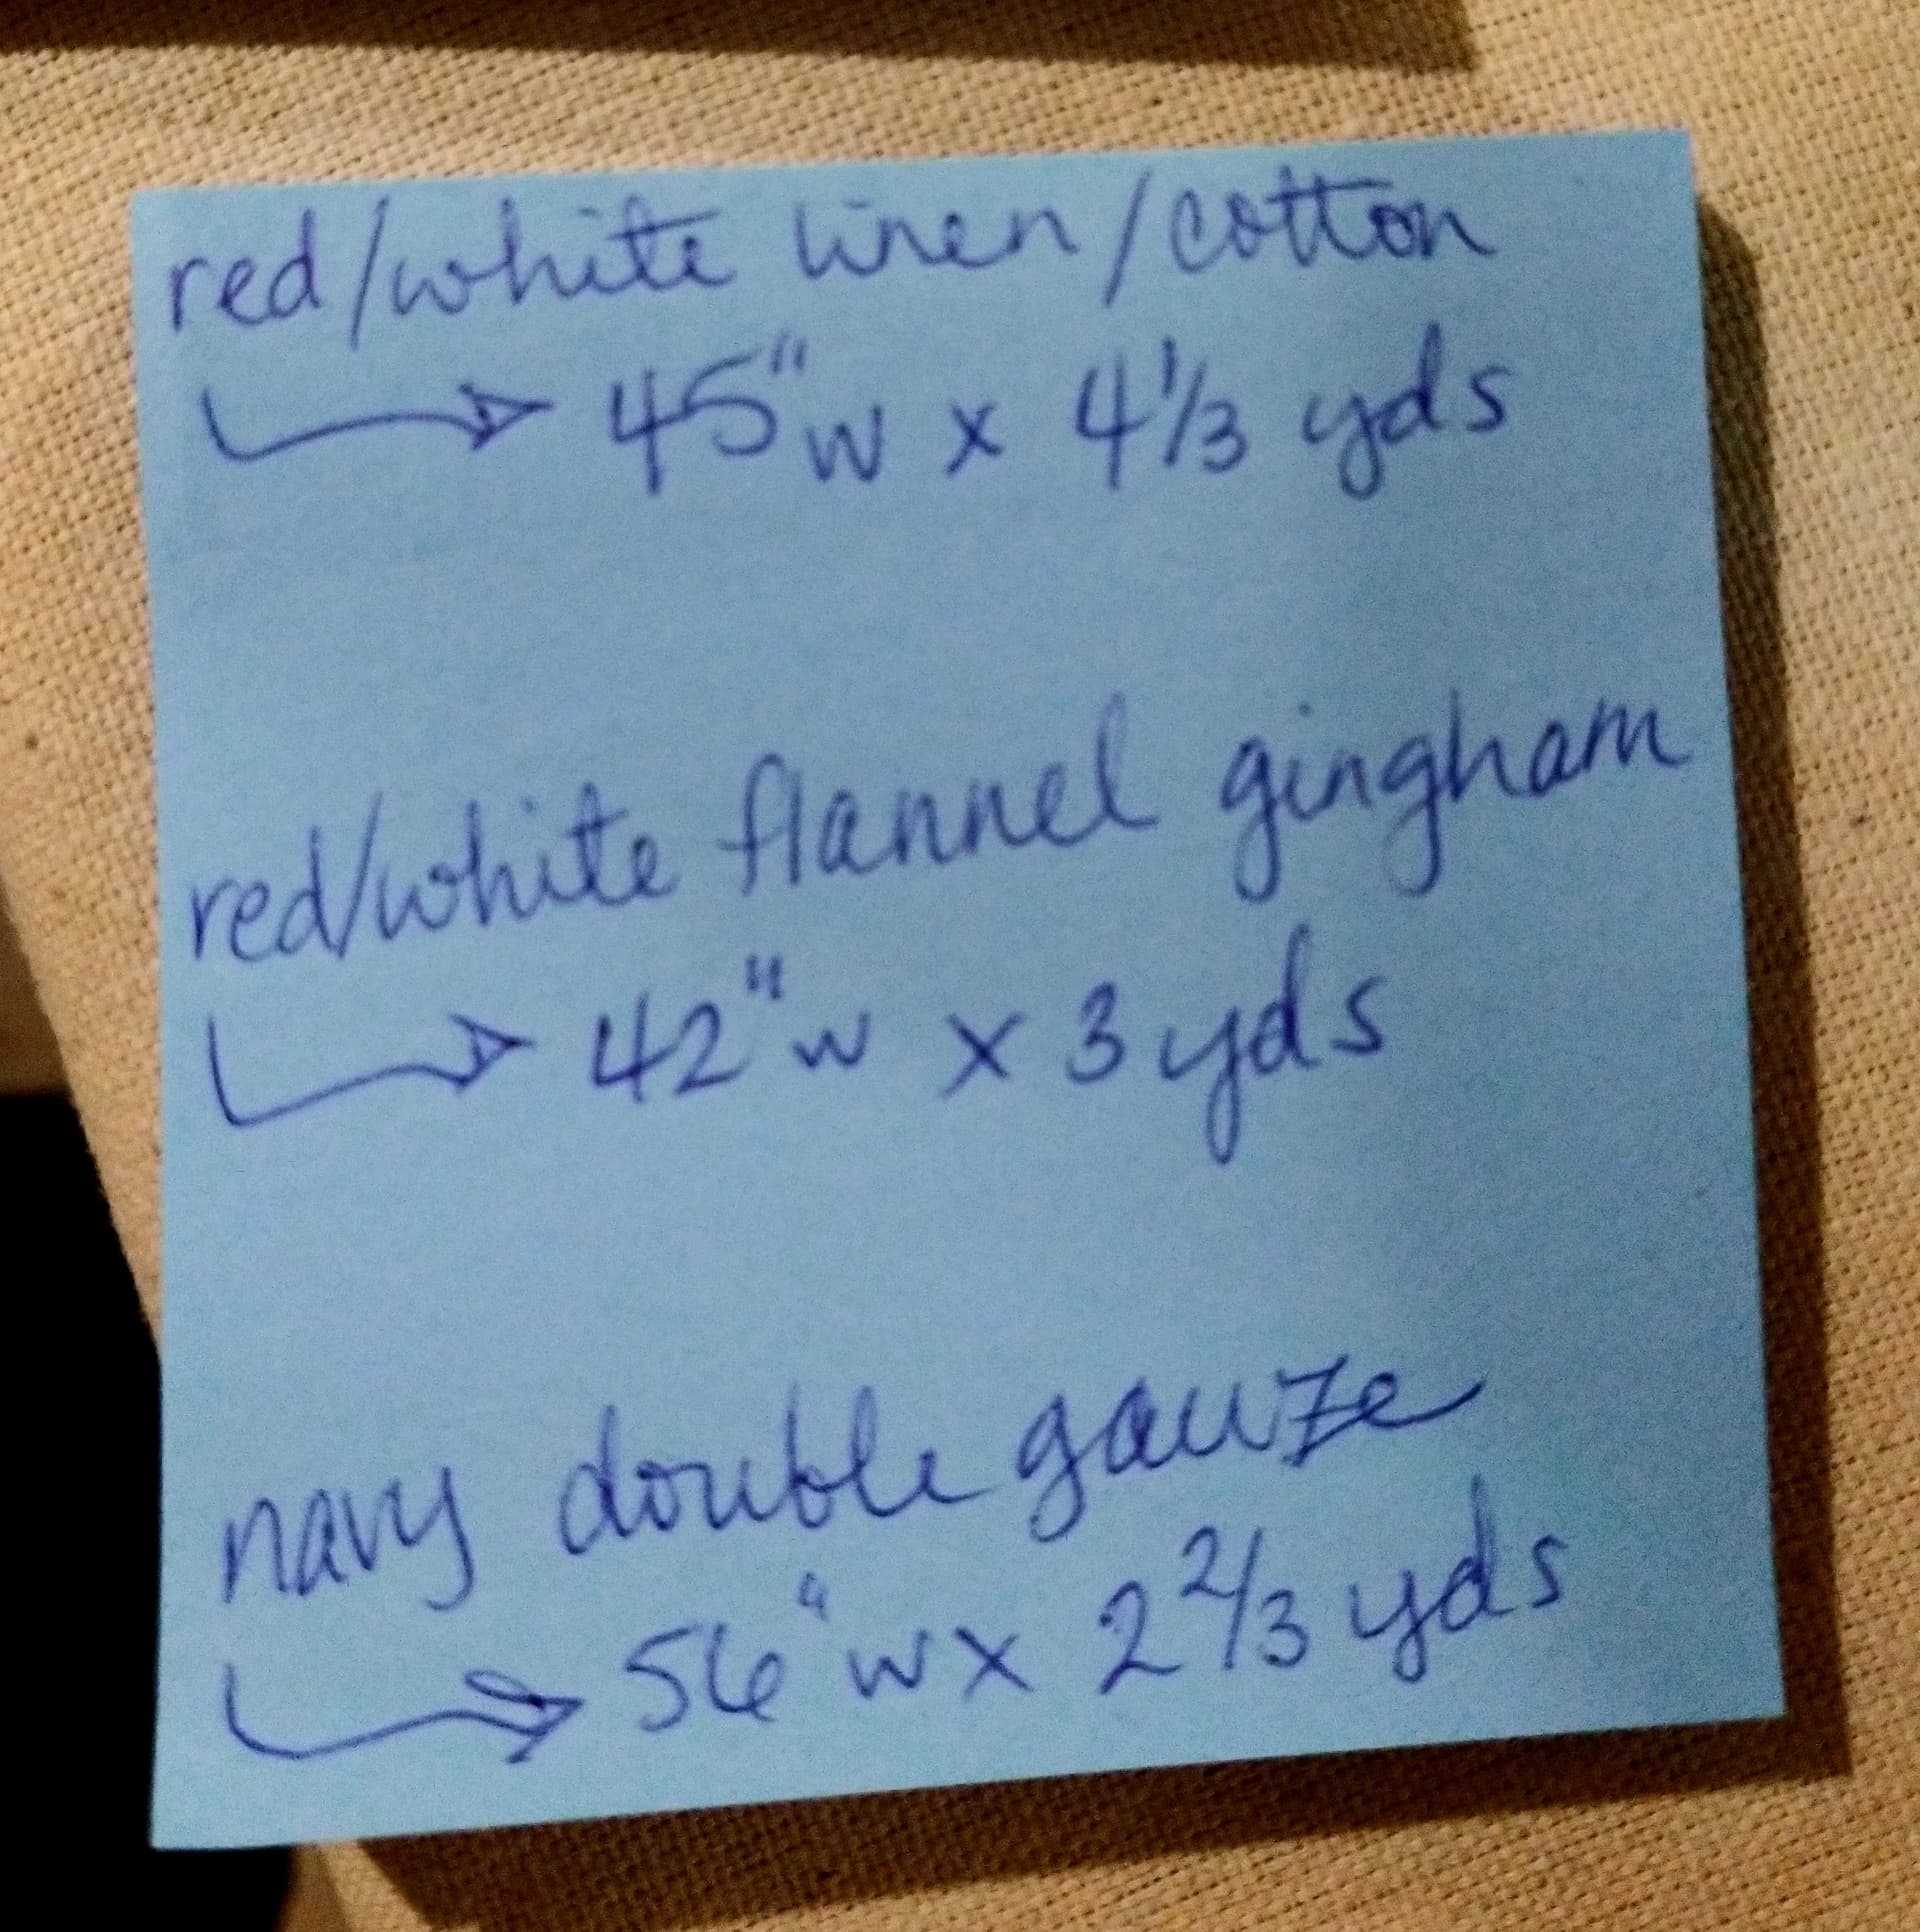 red/white linen/cotton
→ 45"w x 4 1/3 yds
red/white flannel gingham
→ 42"w x 3 yds
navy double gauze
→ 56"w x 2 2/3 yds